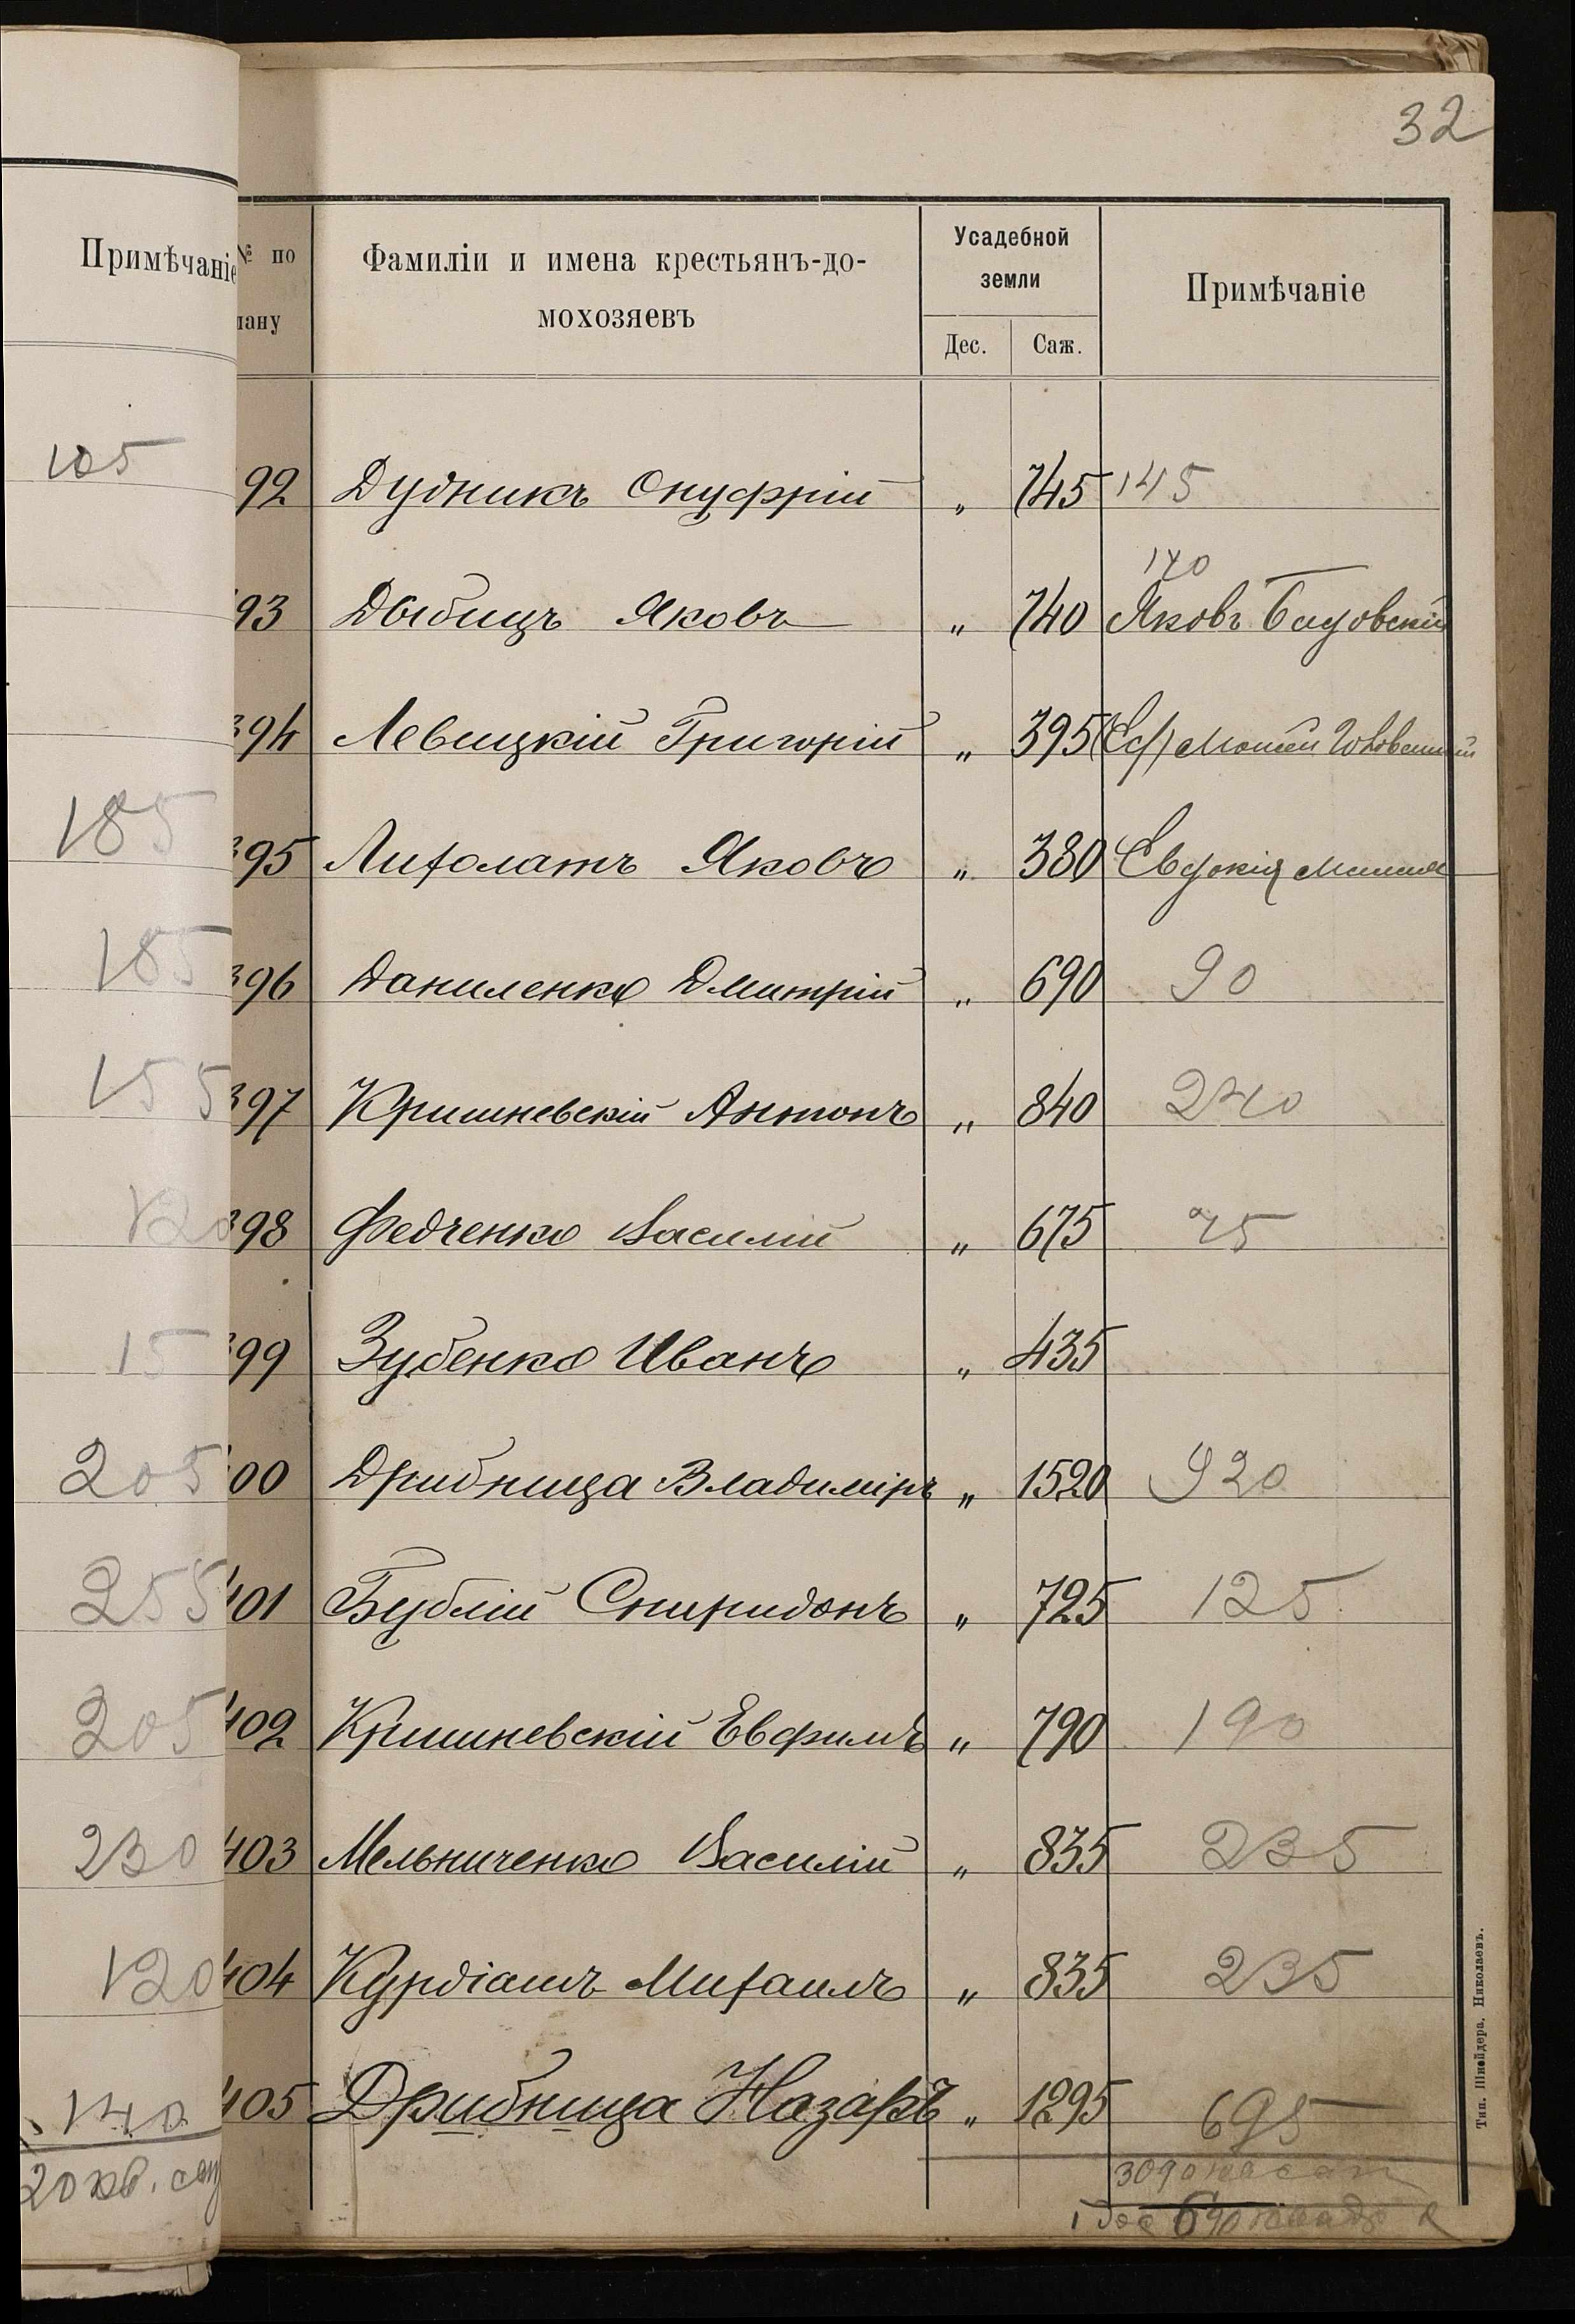 32
Примѣчаніе
105
185
185
155
120
15
205
255
205
230
120
140
20 кв. саж
№ по
лану
Фамиліи и имена крестьянъ-до-
мохозяевъ
Усадебной
земли
Дес. Саж.
Примѣчаніе
92 Дудникъ Онуфрій „ 745 145
140
93 Дыбицъ Яковъ „ 740 Яковъ
394 Левицкій Григорій „ 395
395 Лихолатъ Яковъ „ 380 Евдокія
396 Даниленко Дмитрій „ 690 90
397 Кришневскій Антонъ „ 840 240
398 Федченко Василій „ 675 75
399 Зубенко Иванъ „ 435
400 Дрибница Владиміръ „ 1520 920
401 Бублій Спиридонъ „ 725 125
402 Кришневскій Евфимъ „ 790 190
403 Мельниченко Василій „ 835 235
404 Курдіашъ Михаилъ „ 835 235
405 Дрибница Назаръ „ 1295 695
3090
1 дес 690
Тип. Шнейдера, Николаевъ.